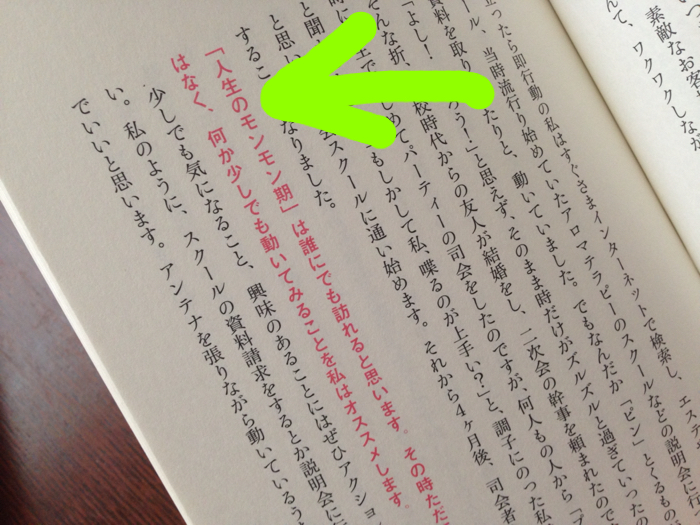 素敵なお客
んて、ワクワクしなが
立ったら即行動の私はすぐさまインターネットで検索し、エステ
ール、当時流行り始めていたアロマテラピーのスクールなどの説明会に行
資料を取り
う！」と思えず、そのまま時だけがズルズルと過ぎていった
たりと、動いていました。でもなんだか「ピン」とくるもの
「よし！
そんな折、
校時代からの友人が結婚をし、二次会の幹事を頼まれたので
めてパーティーの司会をしたのですが、何人もの人から「
もしかして私、喋るのが上手い？」と、調子にのった私
スクールに通い始めます。それから4ヶ月後、司会者
と聞
と思い
なりました。
するこ
「人生のモンモン期」は誰にでも訪れると思います。その時ただ
はなく、何か少しでも動いてみることを私はオススメします。
少しでも気になること、興味のあることにはぜひアクショ
い。私のように、スクールの資料請求をするとか説明会に
でいいと思います。アンテナを張りながら動いているう